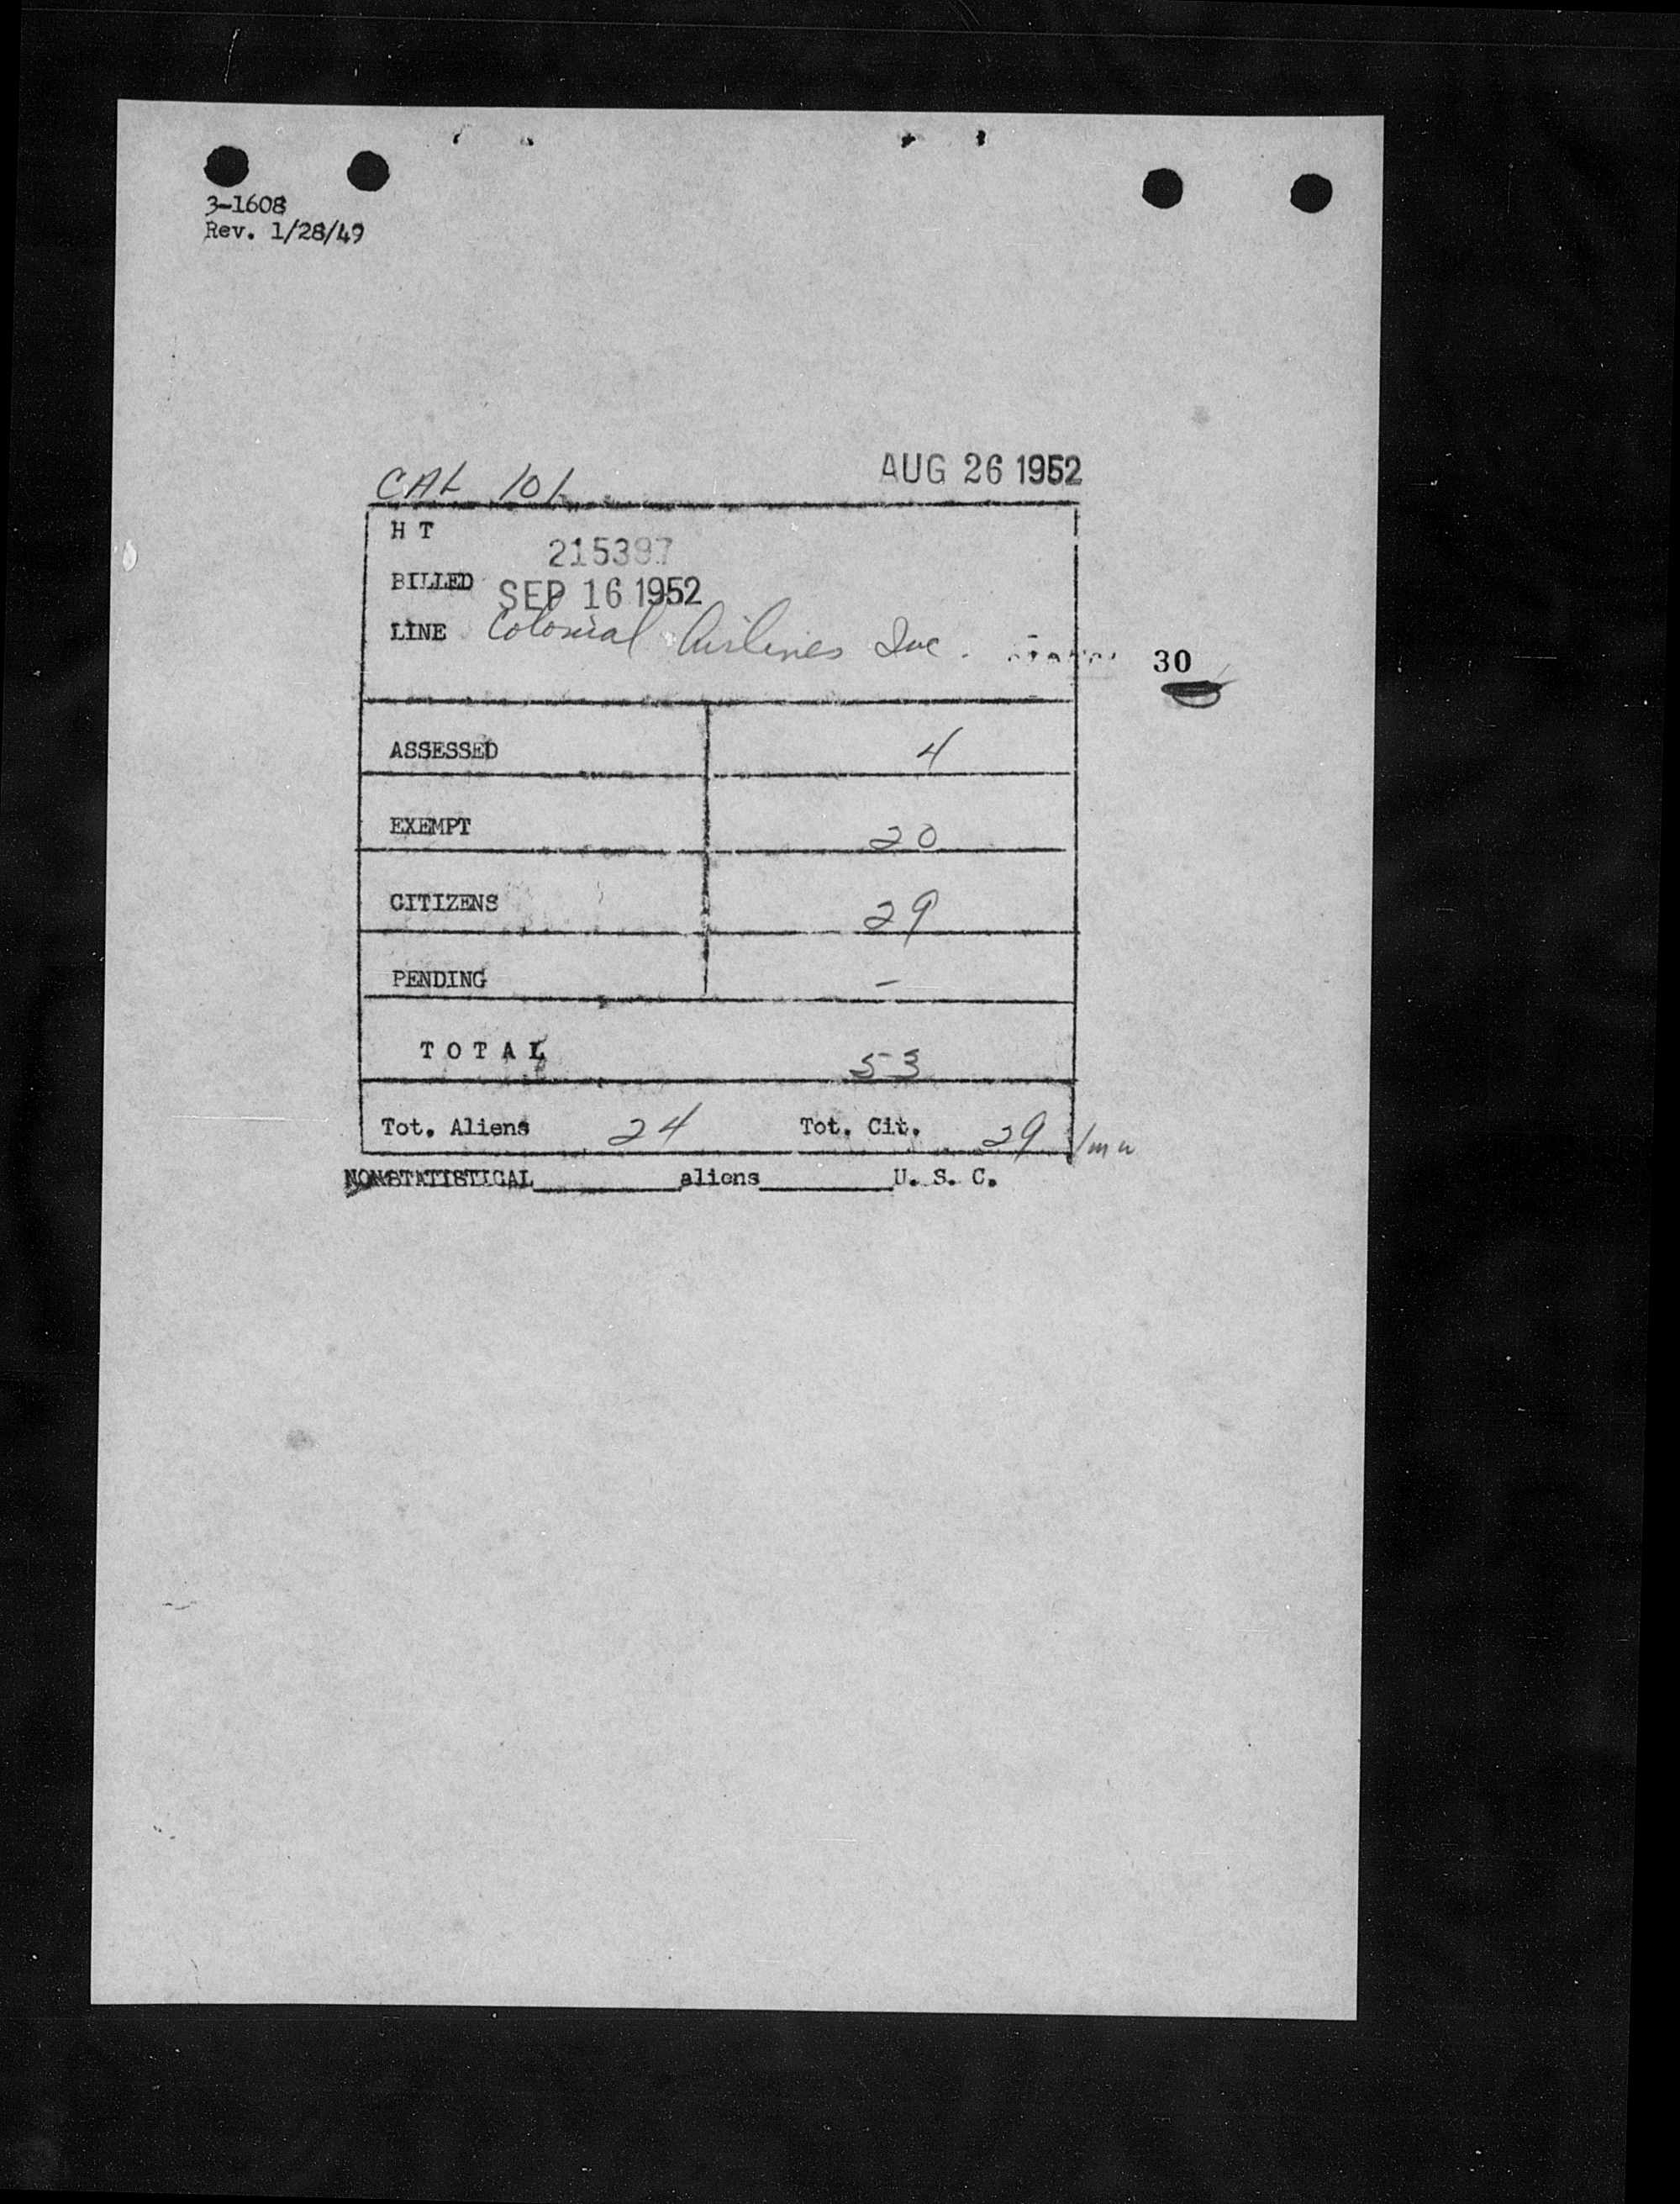 3-1608
Rev. 1/28/49
CAL 101
AUG 26 1952
H T
215397
BILLED SEP 16 1952
LINE Colonial Airlines Inc.
30
ASSESSED 4
EXEMPT 20
CITIZENS 29
PENDING –
TOTAL 53
Tot. Aliens 24 Tot. Cit. 29
NONSTATISTICAL________aliens________U. S. C.